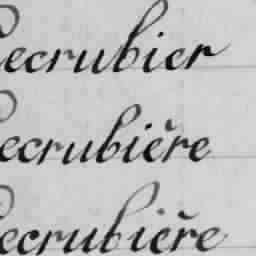 Lecrubier
Lecrubière
Lecrubière